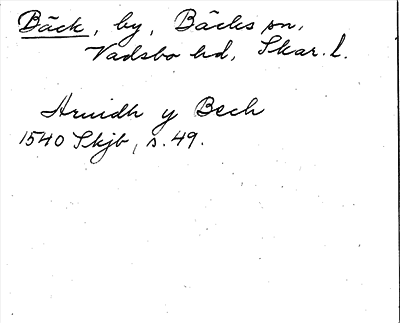 Bäck, by, Bäcks sn,
Vadsbo hd, Skar. l.
Arnidh y Bech
1540 Skjb, s. 49.